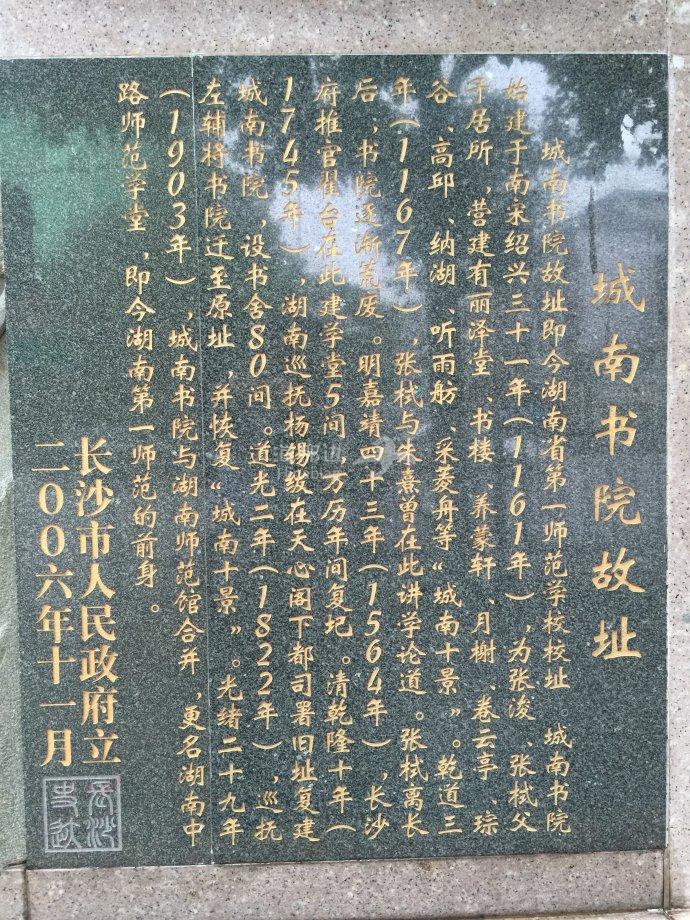 城南书院故址
城南书院故址即今湖南省第一师范学校校址 城南书院
始建于南宋绍兴三十一年(1161年)，为张浚、张栻父
子居所，营建有丽泽堂、书楼、养蒙轩、月榭、卷云亭、琮
谷、高邱、纳湖、听雨舫、采菱舟等“城南十景”。乾道三
年(1167年)，张栻与朱熹曾在此讲学论道。张栻离长
后；书院逐渐荒废。明嘉靖四十三年(1564年)，长沙
府推官翟台在此建学堂5间，万历年间复圮。清乾隆十年(
1745年)，湖南巡抚杨锡绂在天心阁下都司署旧址复建
城南书院，设书舍80间。道光二年(1822年)，巡抚
左辅将书院迁至原址，并恢复“城南十景”。光绪二十九年
(1903年)，城南书院与湖南师范馆合并，更名湖南中
路师范学堂，即今湖南第一师范的前身。
长沙市人民政府立
二00六年十一月